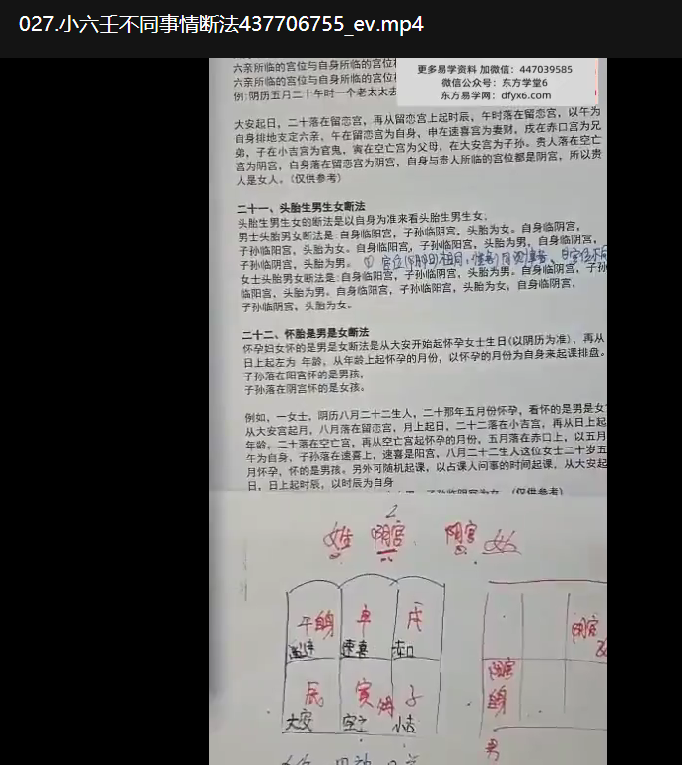 027.小六壬不同事情断法437706755_ev.mp4
更多易学资料 加微信：447039585
微信公众号：东方学堂6
东方易学网：dfyx6.com
六亲所临的宫位与自身所临的宫位
六亲所临的宫位与自身所临的宫位
例:阴历五月二十午时一个老太太去
大安起日，二十落在留恋宫，再从留恋宫上起时辰，午时落在留恋宫，以午为
自身排地支定六亲，午在留恋宫为自身，申在速喜宫为妻财，戌在赤口宫为兄
弟，子在小吉宫为官鬼，寅在空亡宫为父母，在大安宫为子孙。贵人落在空亡
宫为阴宫，自身落在留恋宫为阴宫，自身与贵人所临的宫位都是阴宫，所以贵
人是女人。（仅供参考）
二十一、头胎生男生女断法
头胎生男生女的断法是以自身为准来看头胎生男生女。
男士头胎男女断法是:自身临阳宫，子孙临阴宫，头胎为女。自身临阴宫，
子孙临阳宫，头胎为女。自身临阳宫，子孙临阳宫，头胎为男，自身临阴宫，
子孙临阴宫，头胎为男。 ① 宫位
女士头胎男女断法是:自身临阳宫，子孙临阴宫，头胎为男。自身临阴宫，子孙
临阳宫，头胎为男。自身临阳宫，子孙临阳宫，头胎为女，自身临阴宫，
子孙临阴宫，头胎为女。
二十二、怀胎是男是女断法
怀孕妇女怀的是男是女断法是从大安开始起怀孕女士生日(以阴历为准)，再从
日上起左为 年龄，从年龄上起怀孕的月份，以怀孕的月份为自身来起课排盘。
子孙落在阳宫怀的是男孩。
子孙落在阴宫怀的是女孩。
例如，一女士，阴历八月二十二生人，二十那年五月份怀孕，看怀的是男是女
从大安宫起月，八月落在留恋宫，月上起日，二十二落在小吉宫，再从日上起
年龄，二十落在空亡宫，再从空亡宫起怀孕的月份，五月落在赤口上，以五月
午为自身，子孙落在速喜上，速喜是阳宫，八月二十二生人这位女士二十岁五
月怀孕，怀的是男孩。另外可随机起课，以占课人问事的时间起课，从大安起
日，日上起时辰，以时辰为自身
子孙临阴宫为女。（仅供参考）
2
阴宫 阴宫 女
午 自身 申 戌
速喜 赤口
辰 寅 子
大安 空亡 小吉
阴宫
阳宫
自身
男